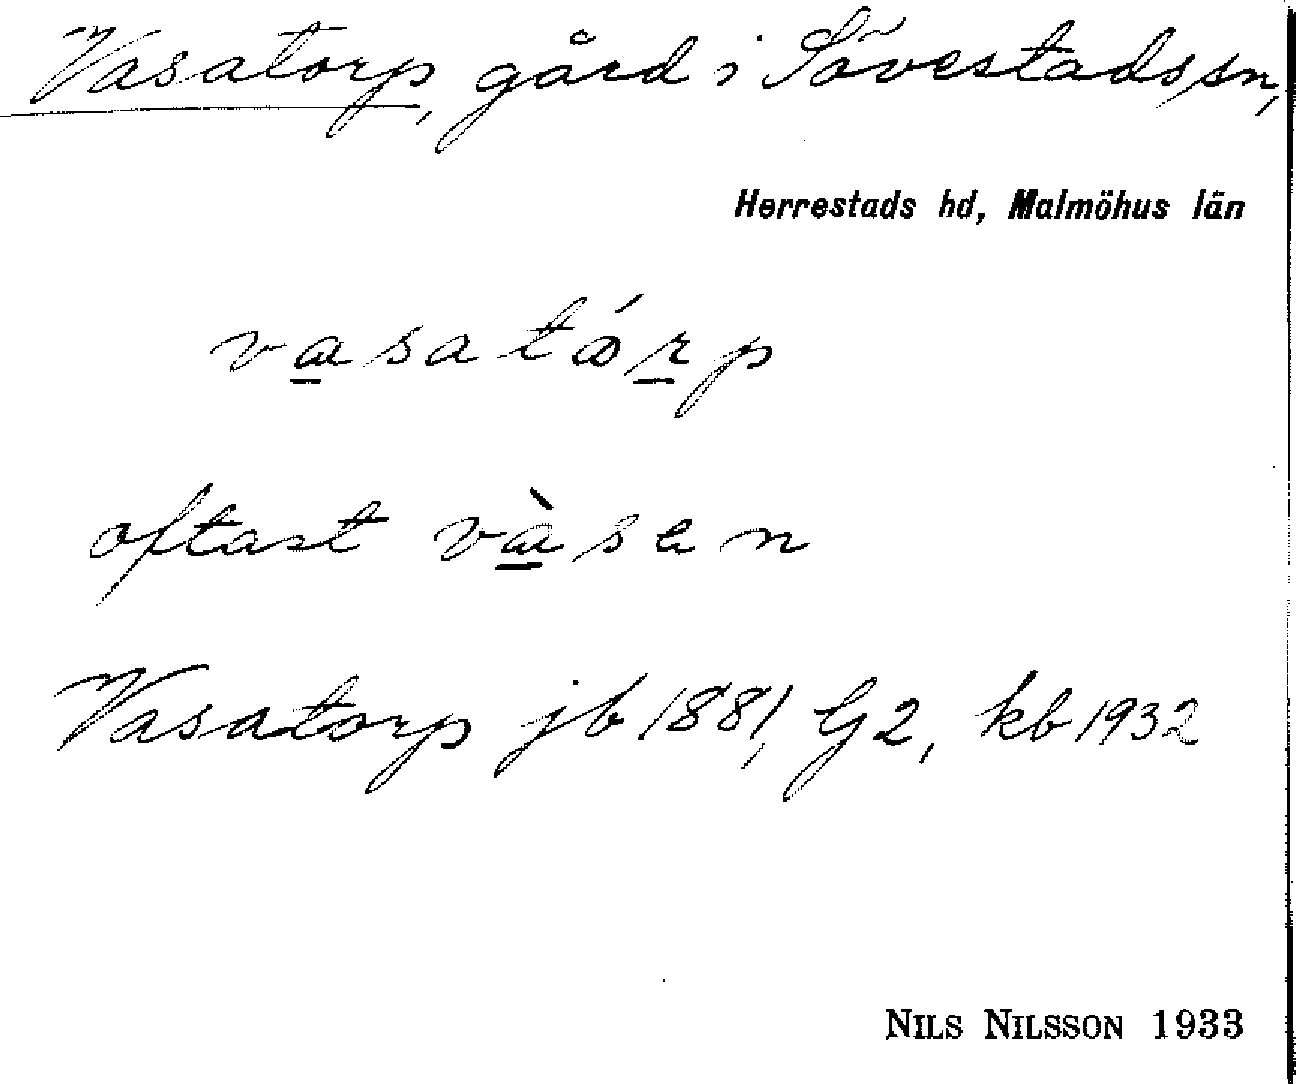 Vasatorp, gård i Sövestads sn,
Herrestads hd, Malmöhus län
va̲sató̲rp
oftast và̲sen
Vasatorp jb 1881, G2, kb 1932
NILS NILSSON 1933